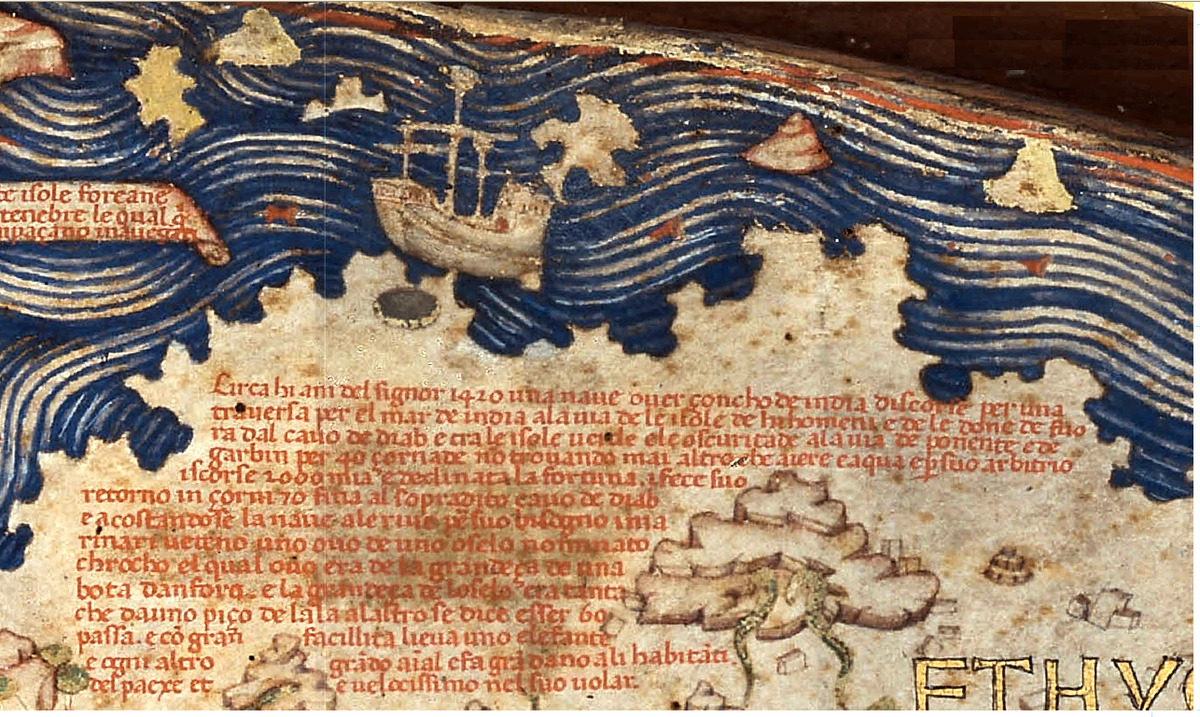 de isole foreane
tenebre le qual
Circa hi ani del signor 1420 una naue ouer çoncho de india discorse per una
trauersa per el mar de india a la uia de le isole de hi homeni e de le done de fuo
ra dal cauo de diab e tra le isole uerde e le oscuritade a la uia de ponente e de
garbin per 40 çornade no trouando mai altro che aiere e aqua e p suo arbitrio
iscorse 2000 mia e declinata la fortuna i fece suo
retorno in çorni 70 fina al sopradito cauo de diab
e acostandose la naue a le riue p suo bisogno i ma
rinari uedeno uno ouo de uno oselo nominato
chrocho el qual ouo era de la grandeça de una
bota danfora e la grandeça de loselo era tanta
che da uno piço de lala a laltro se dice esser 60
passa e cō gran facillita lieua uno elefante
e ogni altro grādo aīal e fa grā dano a li habitāti
del paexe et e uelocissimo nel suo uolar.
ETHY